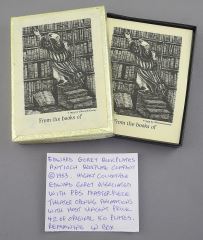 From the books of
From the books of
EDWARD GOREY BOOKPLATES
ANTIOCH BOOKPLATE COMPANY
©1953. HIGHLY COLLECTIBLE
EDWARD GOREY ASSOCIATED
WITH PBS MASTERPIECE
THEATER OPENING ANIMATIONS
WITH HOST VINCENT PRICE.
42 OF ORIGINAL 50 PLATES.
W BOX